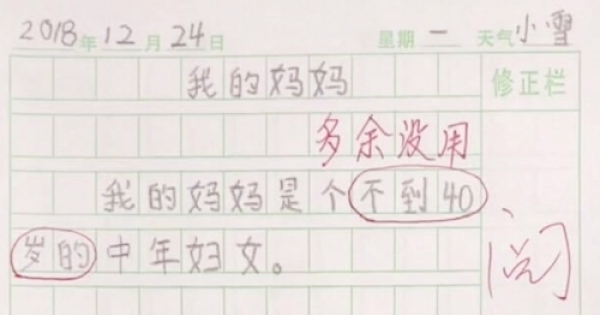 2018年12月24日 星期一 天气小雪
我的妈妈 修正栏
多余没用
我的妈妈是个不到40
岁的中年妇女。
阅